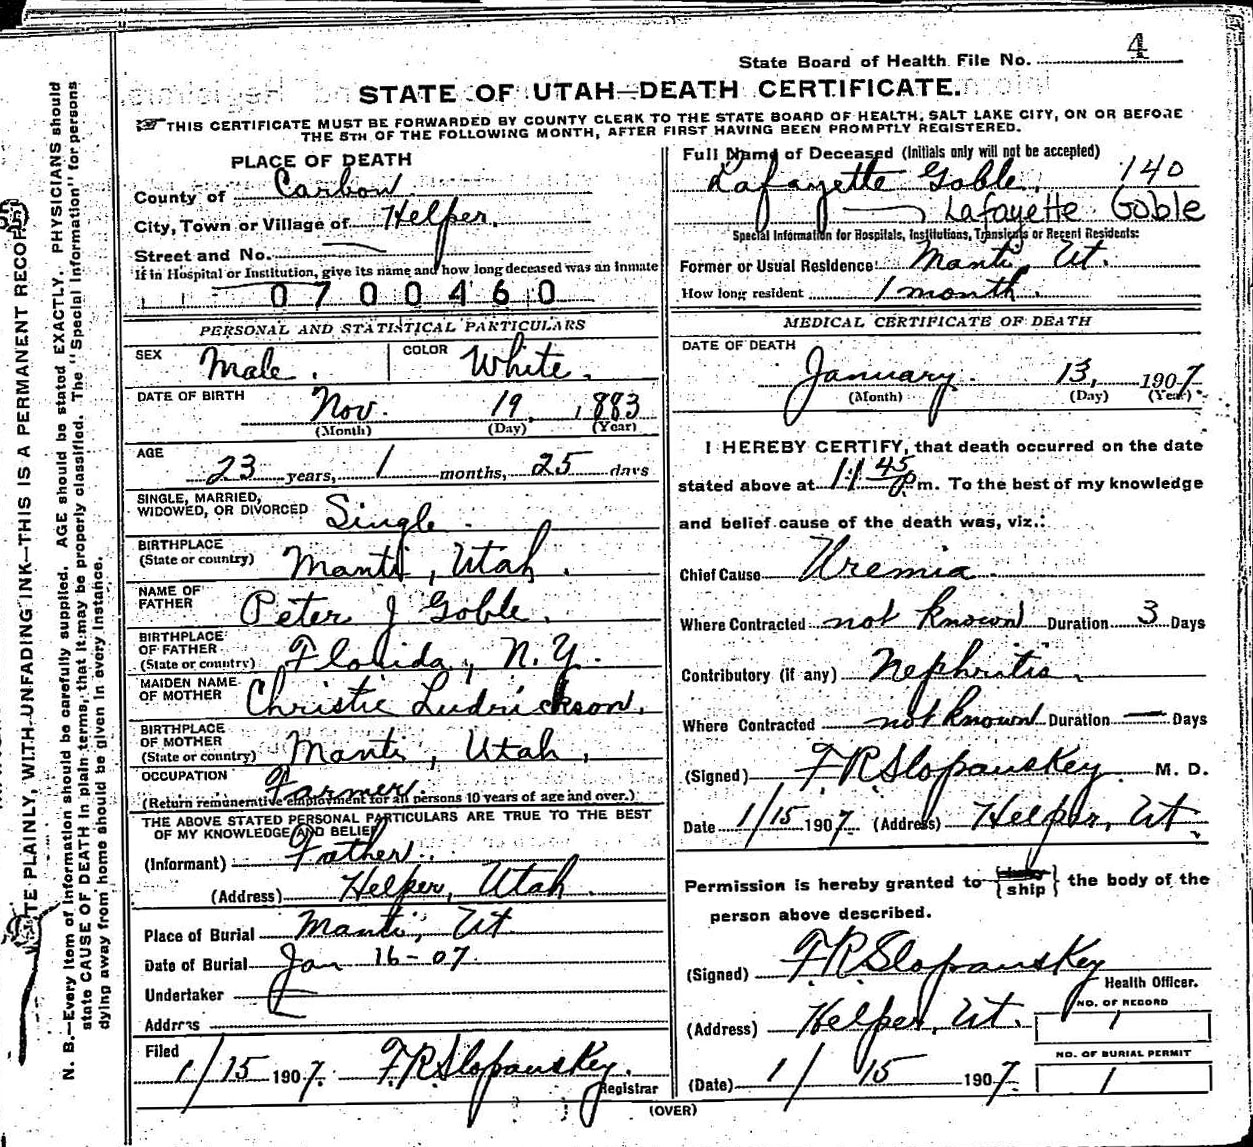 State Board of Health File No. 4
STATE OF UTAH—DEATH CERTIFICATE.
THIS CERTIFICATE MUST BE FORWARDED BY COUNTY CLERK TO THE STATE BOARD OF HEALTH, SALT LAKE CITY, ON OR BEFORE
THE 5TH OF THE FOLLOWING MONTH, AFTER FIRST HAVING BEEN PROMPTLY REGISTERED.
PLACE OF DEATH
County of Carbon
City, Town or Village of Helper.
Street and No.
If in Hospital or Institution, give its name and how long deceased was an inmate
0700460
PERSONAL AND STATISTICAL PARTICULARS
SEX Male. COLOR White.
DATE OF BIRTH Nov. 19, 1883
(Month) (Day) (Year)
AGE
23 years, 1 months, 25 days
SINGLE, MARRIED,
WIDOWED, OR DIVORCED Single.
BIRTHPLACE
(State or country) Manti, Utah.
NAME OF
FATHER Peter J Goble.
BIRTHPLACE
OF FATHER
(State or country) Florida, N.Y.
MAIDEN NAME
OF MOTHER Christie Ludrickson.
BIRTHPLACE
OF MOTHER
(State or country) Manti, Utah,
OCCUPATION Farmer.
(Return remunerative employment for all persons 10 years of age and over.)
THE ABOVE STATED PERSONAL PARTICULARS ARE TRUE TO THE BEST
OF MY KNOWLEDGE AND BELIEF
(Informant) Father.
(Address) Helper, Utah.
Place of Burial Manti, Ut.
Date of Burial Jan 16-07.
Undertaker
Address
Filed
1/15 1907. F.R. Slopanskey.
Registrar
Full Name of Deceased (Initials only will not be accepted)
Lafayette Goble. 140
Lafayette Goble
Special Information for Hospitals, Institutions, Transients or Recent Residents:
Former or Usual Residence Manti, Ut.
How long resident 1 month.
MEDICAL CERTIFICATE OF DEATH
DATE OF DEATH
January 13, 1907
(Month) (Day) (Year)
I HEREBY CERTIFY, that death occurred on the date
stated above at 11:45 p.m. To the best of my knowledge
and belief cause of the death was, viz.:
Chief Cause Uremia
Where Contracted not known Duration 3 Days
Contributory (if any) Nephritis.
Where Contracted not known Duration — Days
(Signed) F.R. Slopanskey. M. D.
Date 1/15 1907. (Address) Helper, Ut.
Permission is hereby granted to {ship} the body of the
person above described.
(Signed) F.R. Slopanskey
Health Officer.
(Address) Helper, Ut.
NO. OF RECORD
1
NO. OF BURIAL PERMIT
1
(Date) 1/15 1907.
(OVER)
WRITE PLAINLY, WITH UNFADING INK—THIS IS A PERMANENT RECORD
N. B.—Every item of information should be carefully supplied. AGE should be stated EXACTLY. PHYSICIANS should
state CAUSE OF DEATH in plain terms, that it may be properly classified. The "Special Information" for persons
dying away from home should be given in every instance.